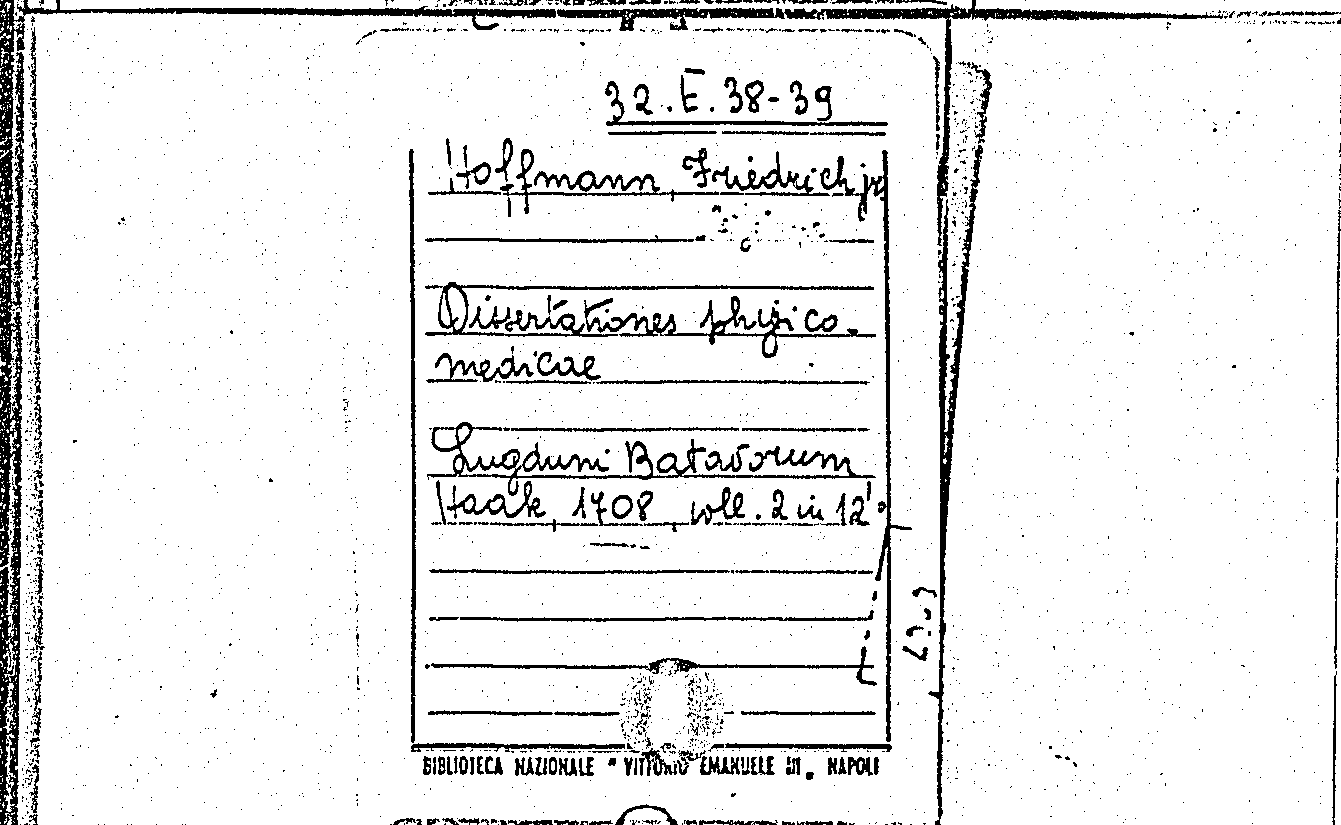 32.E.38-39
Hoffmann, Friedrich jr
Dissertationes physico-
medicae
Lugduni Batavorum
Haak, 1708, voll. 2 in 12°
BIBLIOTECA NAZIONALE "VITTORIO EMANUELE III" NAPOLI